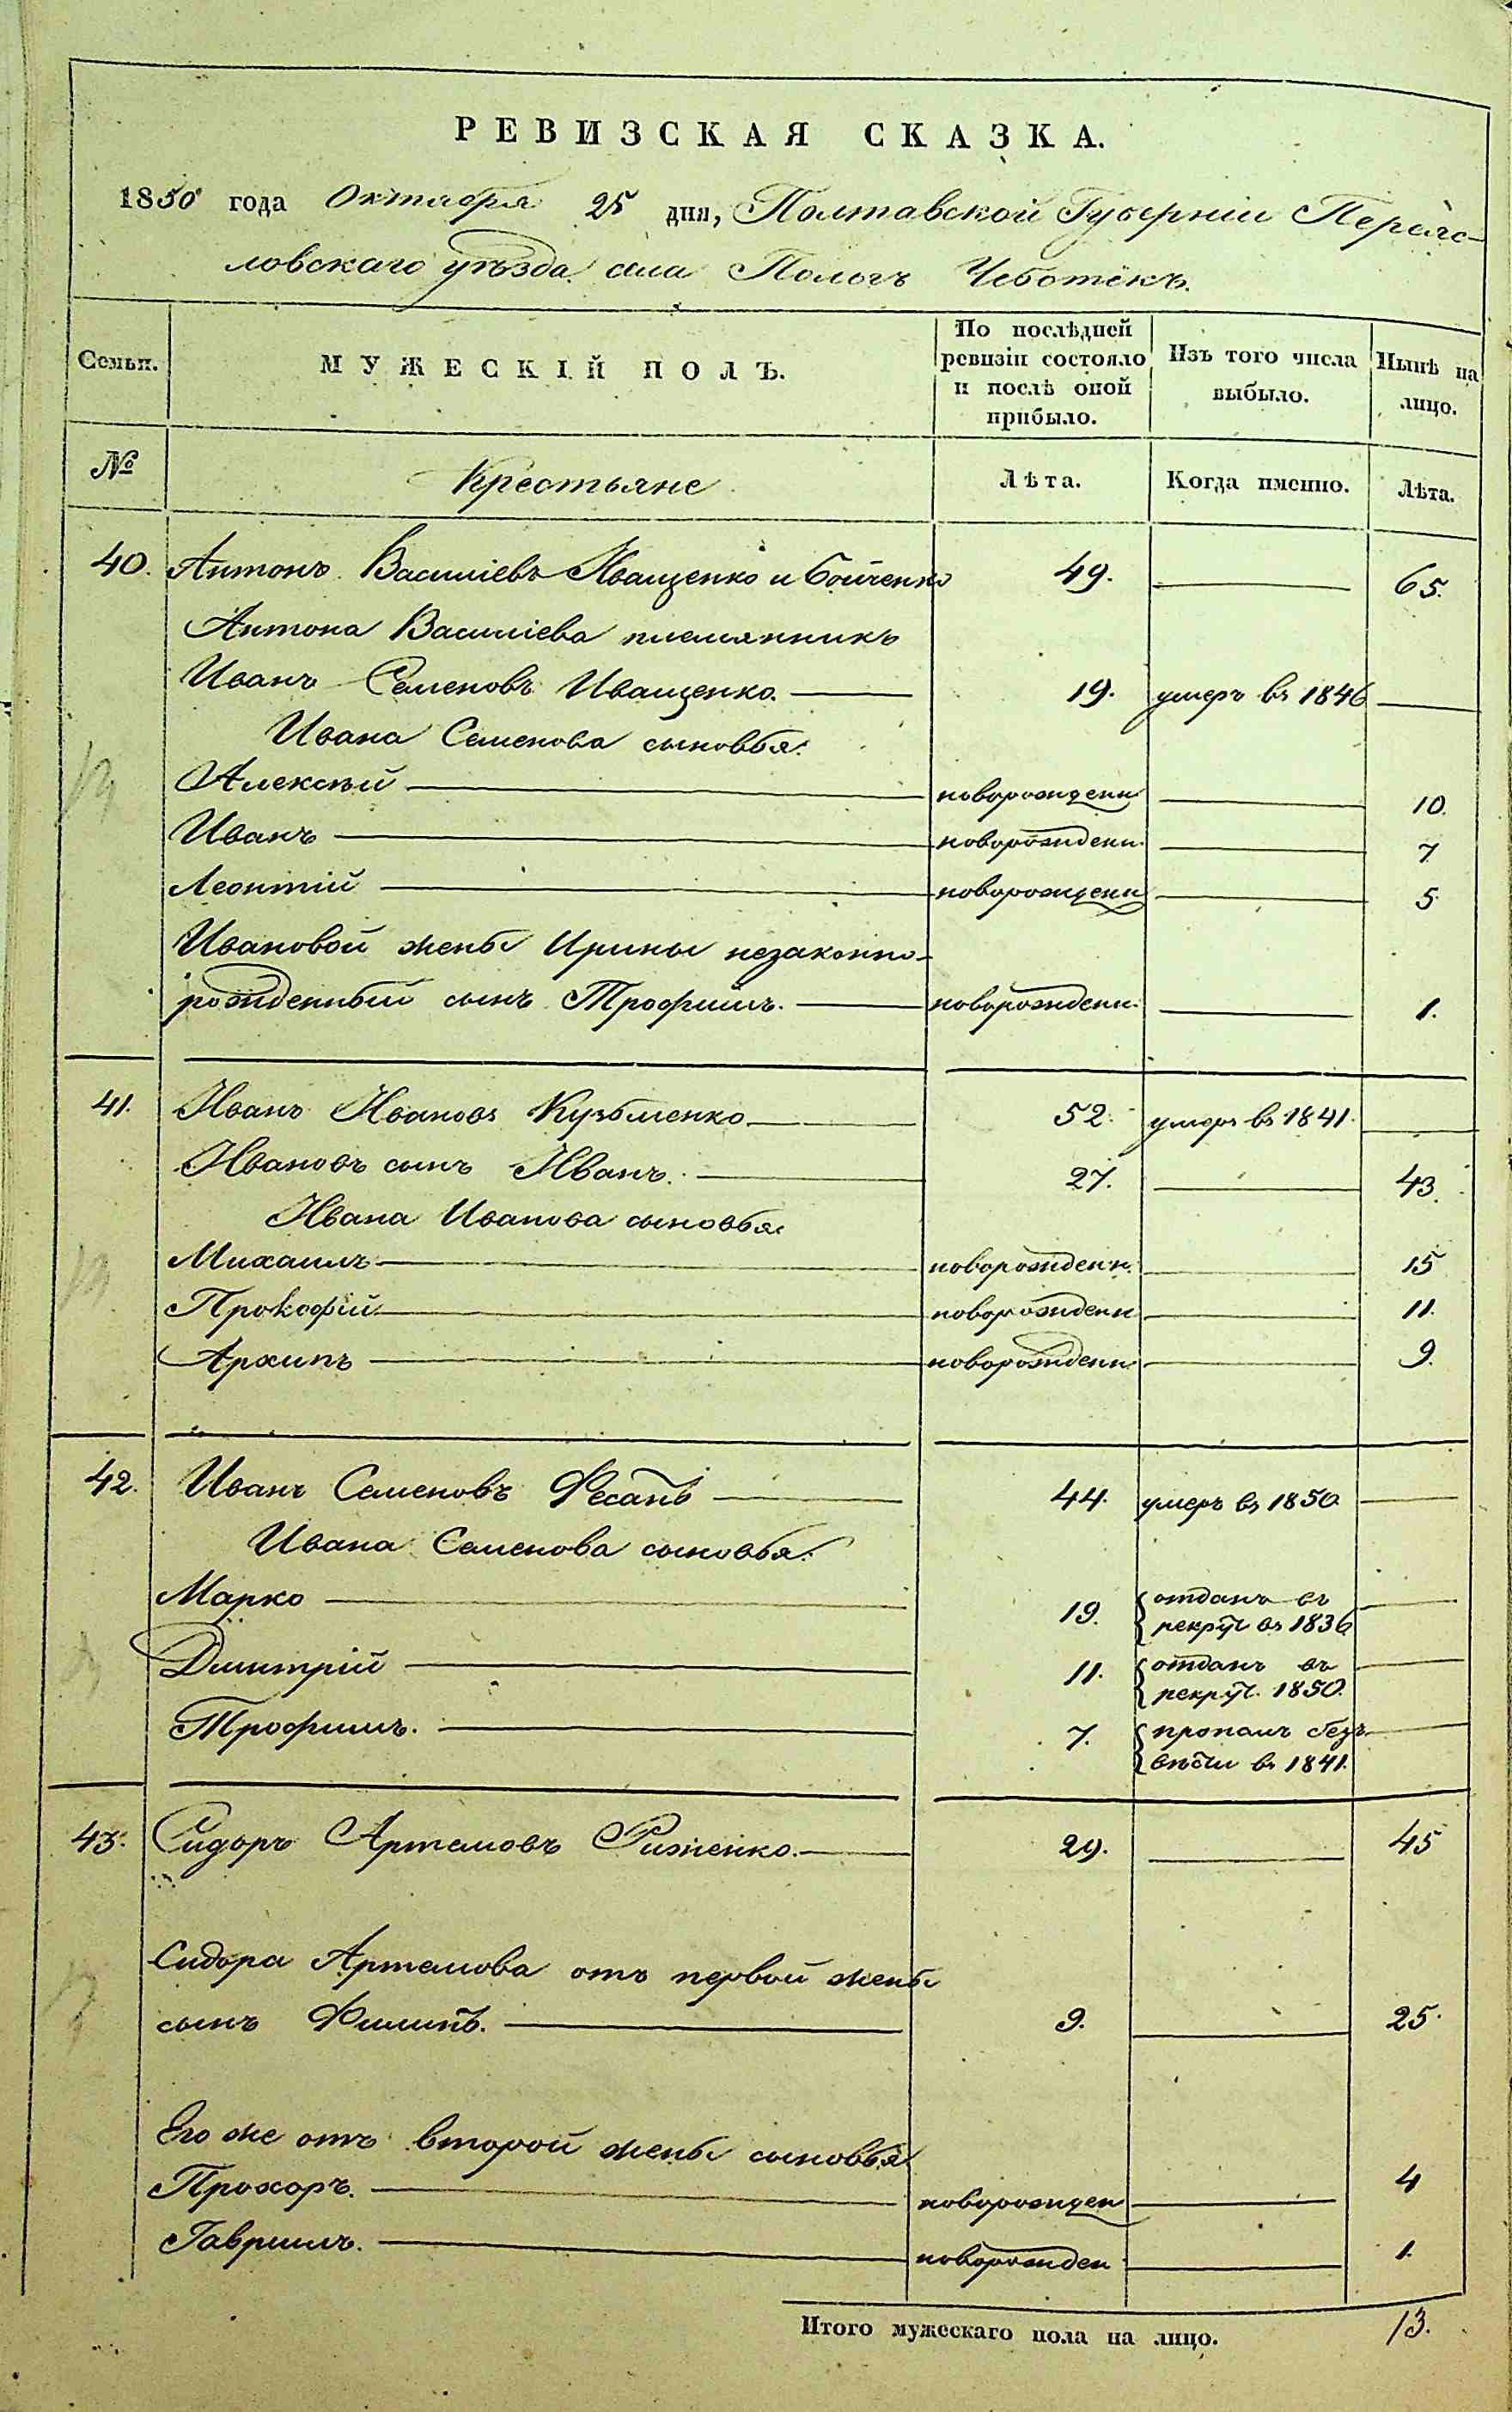 РЕВИЗСКАЯ СКАЗКА.
1850 года Октября 25 дня, Полтавской Губерніи Переяс-
ловскаго уѣзда села Пологъ Чеботёкъ.
Семьи. МУЖЕСКІЙ ПОЛЪ. По послѣдней ревизіи состояло и послѣ оной прибыло. Изъ того числа выбыло. Нынѣ на лицо.
№ Крестьяне Лѣта. Когда именно. Лѣта.
40. Антонъ Василіевъ Иващенко и Бойченко 49. 65.
Антона Василіева племянникъ
Иванъ Семеновъ Иващенко. 19. умеръ въ 1846
Ивана Семенова сыновья:
Алексѣй новорожденн 10.
Иванъ новорожденн. 7
Леонтій новорожденн 5
Ивановой жены Ирины незаконно-
рожденный сынъ Трофимъ. новорожденн. 1.
41. Иванъ Ивановъ Кузьменко 52. умеръ въ 1841.
Ивановъ сынъ Иванъ. 27. 43.
Ивана Иванова сыновья
Михаилъ новорожденн. 15
Прокофій новорожденн 11.
Архипъ новорожденн 9.
42. Иванъ Семеновъ Фесанъ 44. умеръ въ 1850
Ивана Семенова сыновья:
Марко 19. отданъ въ рекрут въ 1836
Дмитрій 11. отданъ въ рекрут. 1850.
Трофимъ. 7. пропалъ безъ вѣсти въ 1841.
43. Сидоръ Артемовъ Риженко. 29. 45
Сидора Артемова отъ первой жены
сынъ Филипъ. 9. 25.
Его же отъ второй жены сыновья
Прохоръ. новорожден 4
Гаврилъ. новорожден 1.
Итого мужескаго пола на лицо. 13.